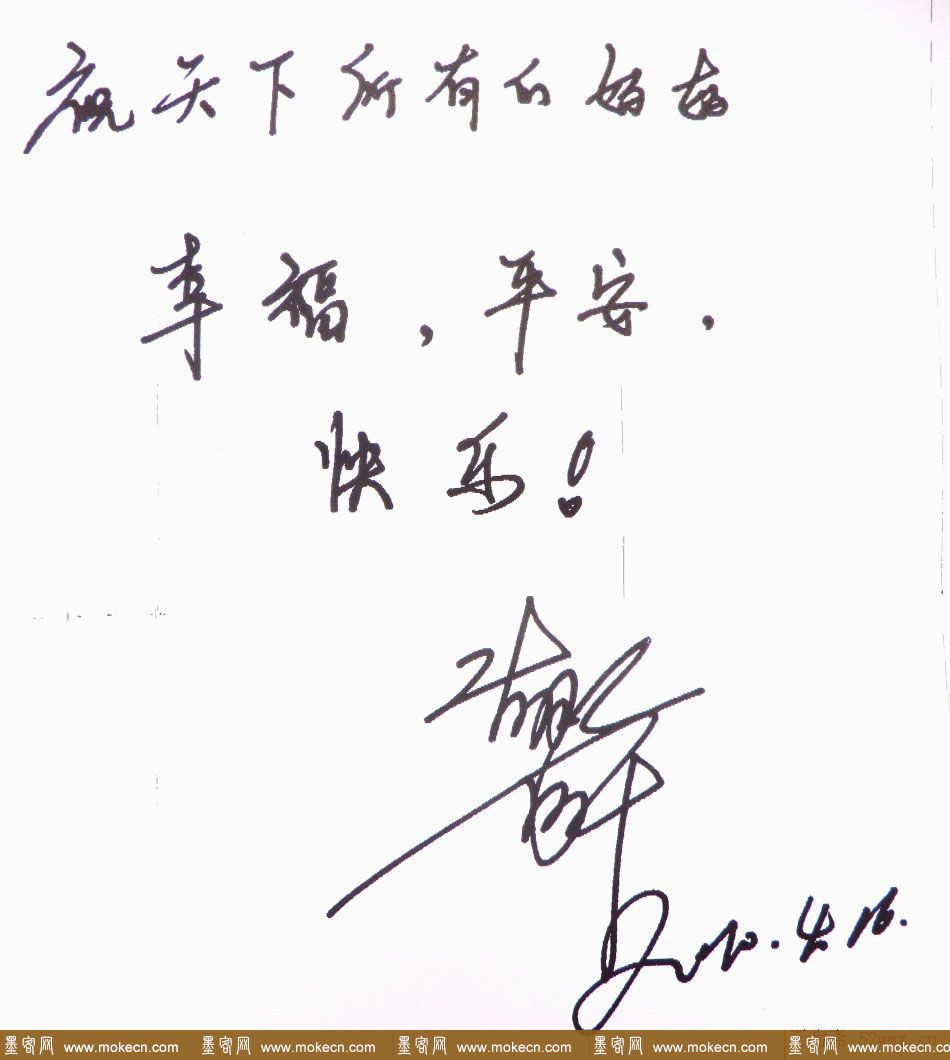 祝天下所有的妈妈
幸福，平安，
快乐！
2010.4.16.
墨客网 www.mokecn.com 墨客网 www.mokecn.com 墨客网 www.mokecn.com 墨客网 www.mokecn.com 墨客网 www.mokecn.com